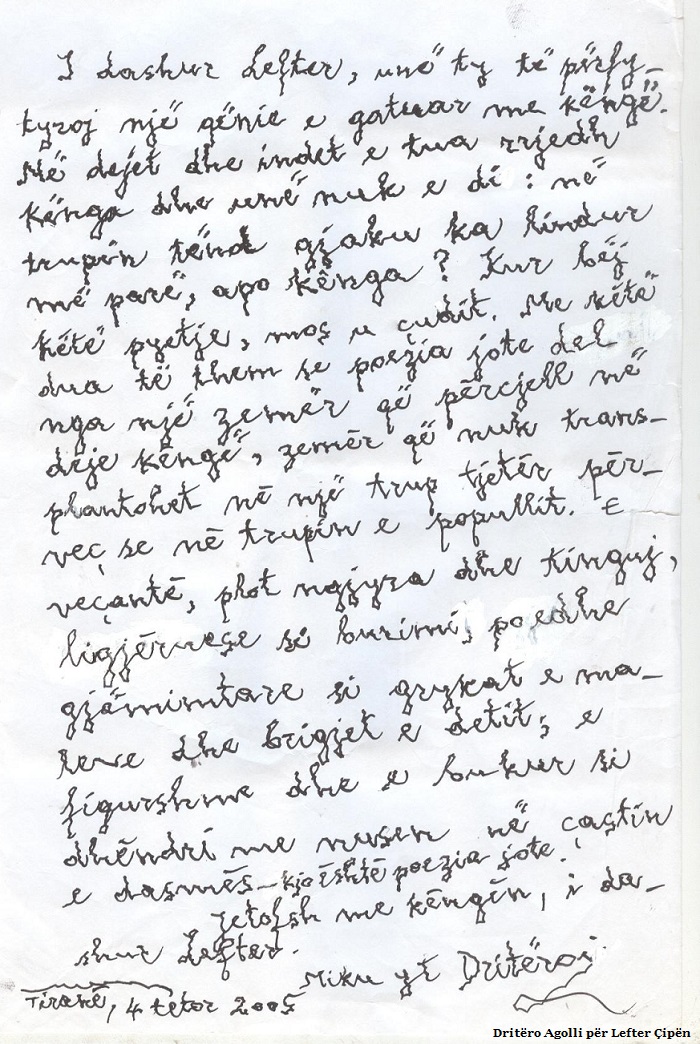 I dashur Lefter, unë ty të përfy-
tyroj një qënie e gatuar me këngë.
Në dejet dhe indet e tua rrjedh
kënga dhe unë nuk e di : në
trupin tënd gjaku ka lindur
më parë, apo kënga ? Kur bëj
këtë pyetje, mos u çudit. Me këtë
dua të them se poezia jote del
nga një zemër që përcjell në
deje këngë, zemër që nuk trans-
plantohet në një trup tjetër për-
veç se në trupin e popullit. E
veçantë, plot ngjyra dhe tinguj,
ligjëruese si burimi, po edhe
gjëmimtare si grykat e ma-
leve dhe brigjet e detit; e
figurshme dhe e bukur si
dhëndri me nusen në çastin
e dasmës - kjo është poezia jote.
Jetofsh me këngën, i da-
shur Lefter.
Miku yt Dritëroi
Tiranë, 4 tetor 2005
Dritëro Agolli për Lefter Çipën